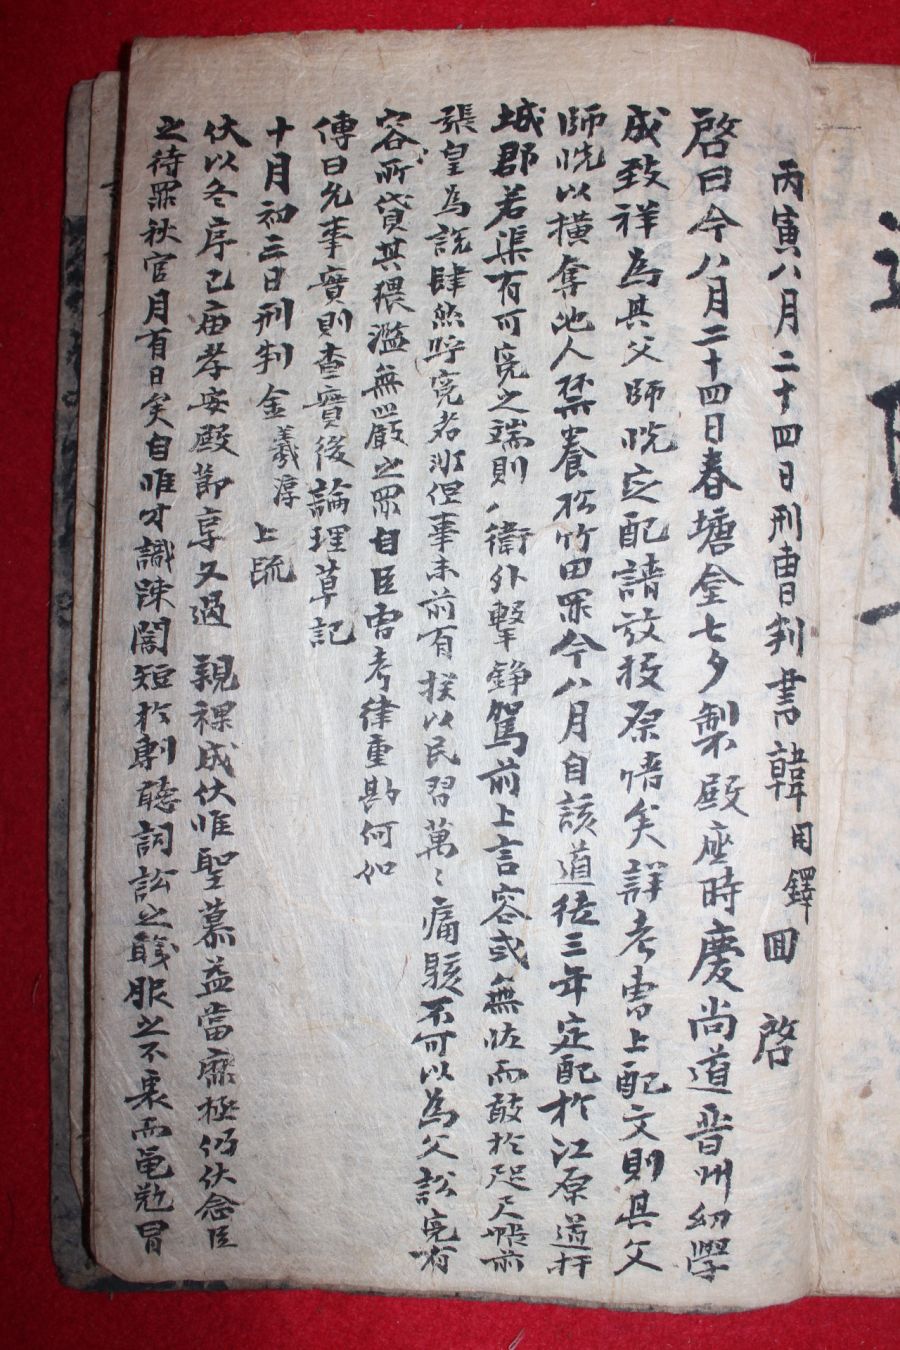 丙寅八月二十四日刑曹判書韓用鐸回 啓
啓曰今八月二十四日春塘坮七夕製 殿座時慶尚道晋州幼學
成致祥為其父師恍定配請放投原情矣詳考曹上配文則其父
師恍以橫奪他人禁養松竹田罪今八月自該道徒三年定配於江原道杆
城郡若渠有可寃之端則 衛外擊錚駕前上言容或無妨而敢於咫尺帳前
張皇為說肆然呼寃者非但事未前有揆以民習萬〻痛駭不可以為父訟寃有
容所貸其猥濫無嚴之罪自臣曹考律重勘何如
傳曰允事實則查實後論理草記
十月初三日刑判金羲淳上疏
伏以冬序已 孝安殿節享又過 親祼成伏惟聖慕益當靡極仍伏念臣
之待罪秋官月有日矣自惟才識陳闇短於剸聽詞訟之 服之不衷而黽 冒